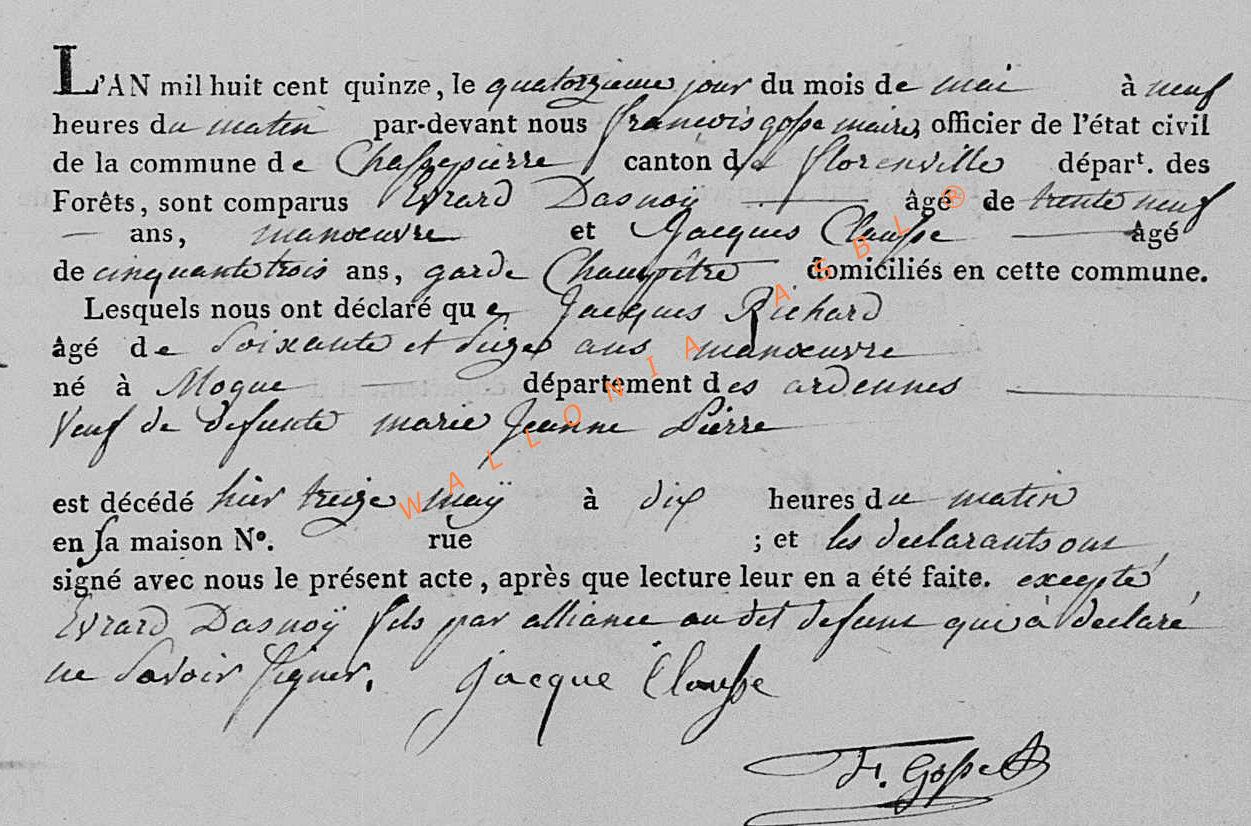 L'AN mil huit cent quinze, le quatorzieme jour du mois de mai à neuf
heures du matin par-devant nous françois gosse maire, officier de l'état civil
de la commune de Chassepierre canton de florenville départ. des
Forêts, sont comparus Evrard Dasnoÿ âgé de trente neuf
ans, manœuvre et Jacques Clausse âgé
de cinquante trois ans, garde Champêtre domiciliés en cette commune.
Lesquels nous ont déclaré que Jacques Richard
âgé de Soixante et Seize ans manœuvre
né à Mogue département des ardennes
Veuf de defunte marie Jeanne Pierre
est décédé hier treize maÿ à dix heures du matin
en sa maison Nº. rue ; et les declarants ont
signé avec nous le présent acte, après que lecture leur en a été faite. excepté
Evrard Dasnoÿ fils par alliance au dit defunt qui à declaré
ne savoir signer. Jacque Clausse
F. Gosse
WALLONIA ASBL ®